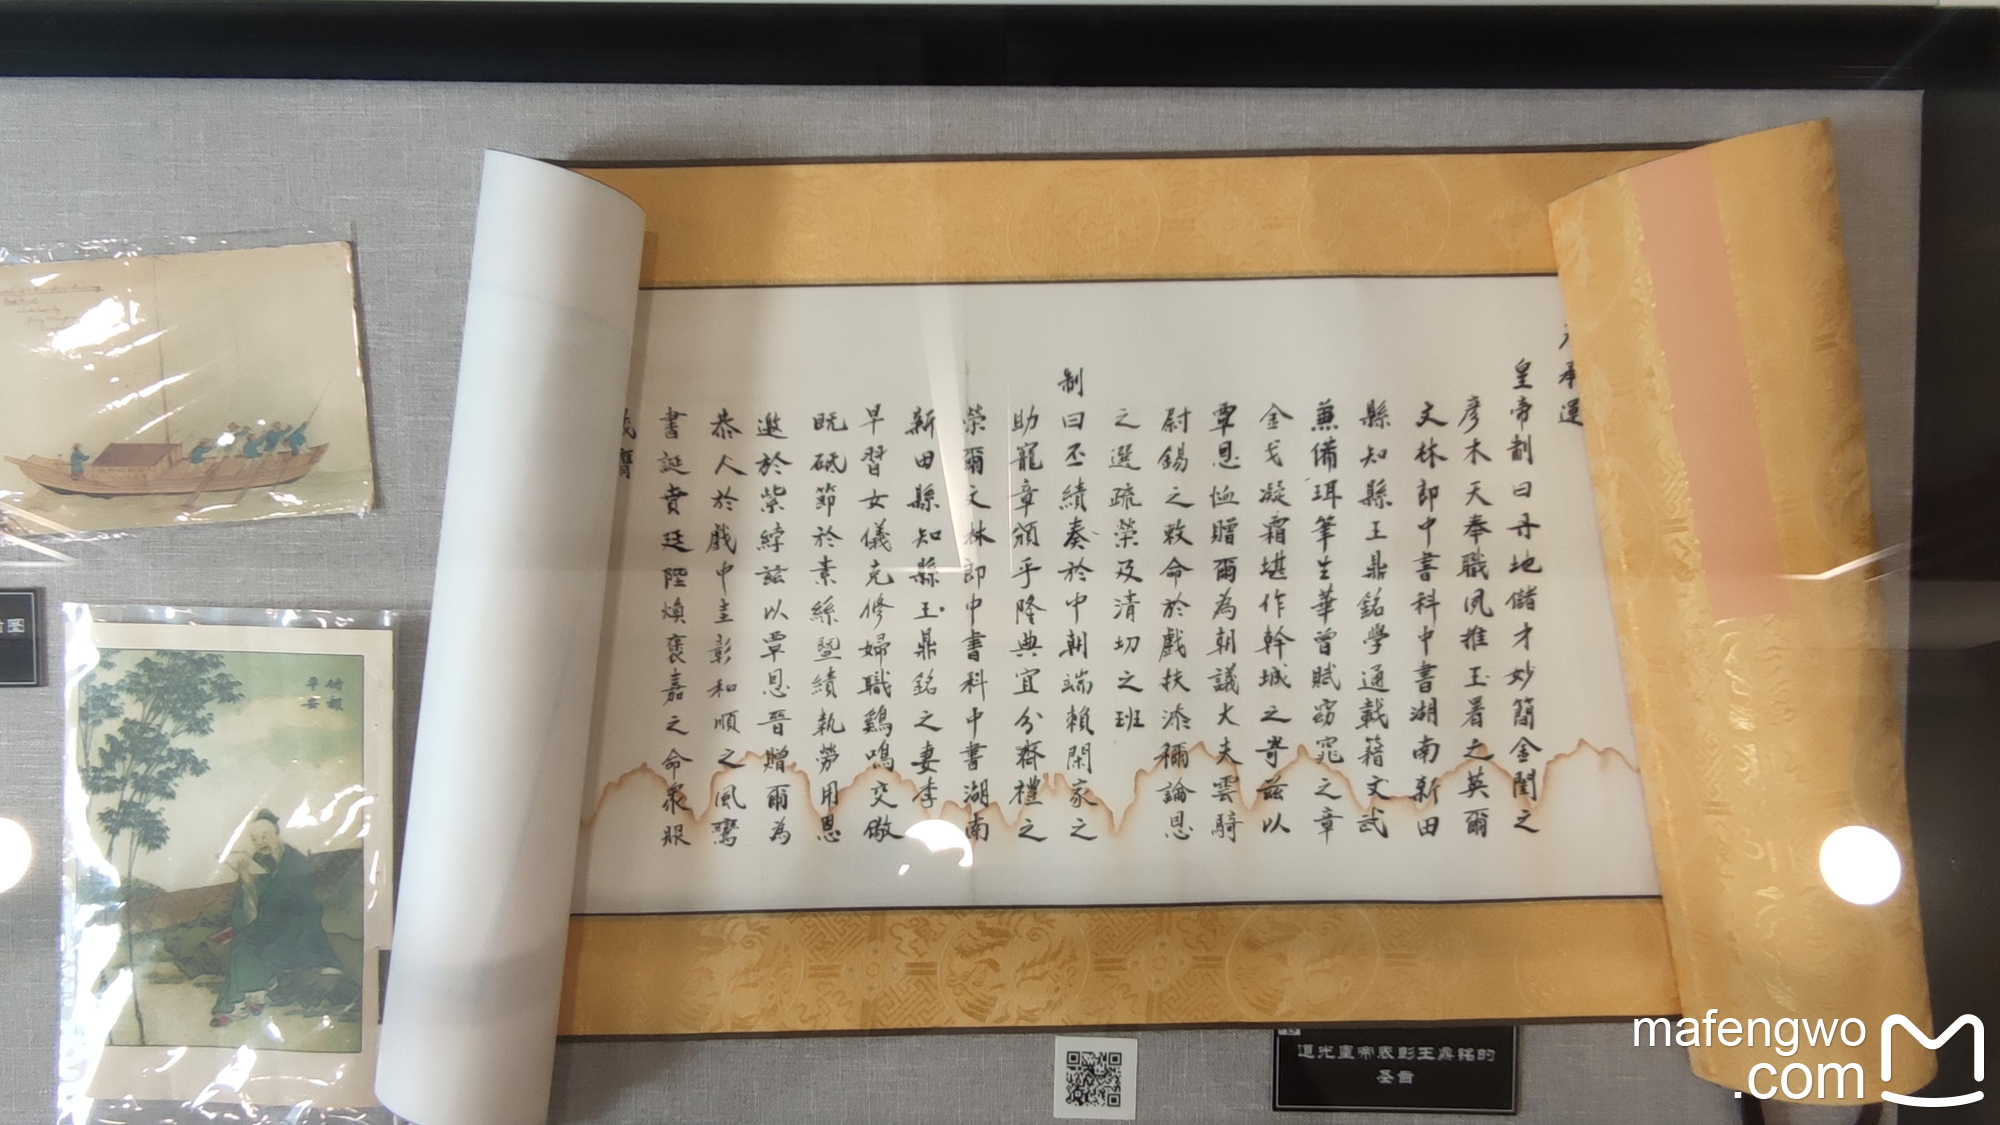 承運
皇帝制曰丹地儲才妙簡金閨之
彥木天奉職夙推玉署之英爾
文林郎中書科中書湖南新田
縣知縣王鼎銘學通載籍文武
兼備珥筆生華曾賦窈窕之章
金戈凝霜堪作幹城之寄茲以
覃恩恤贈爾為朝議大夫雲騎
尉錫之敕命於戲扶添禰論恩
之選疏榮及清切之班
制曰丕績奏於中朝端賴閑家之
助寵章頒乎隆典宜分齊禮之
榮爾文林郎中書科中書湖南
新田縣知縣王鼎銘之妻李
早習女儀克修婦職鷄鳴交儆
既砥節於素絲暨績執勞用恩
邀於紫綍茲以覃恩晉贈爾為
恭人於戲中圭彰和順之風鸞
書誕賁廷陛煥褒嘉之命象服
竹報
平安
道光皇帝表彰王鼎铭的
圣旨
mafengwo
.com